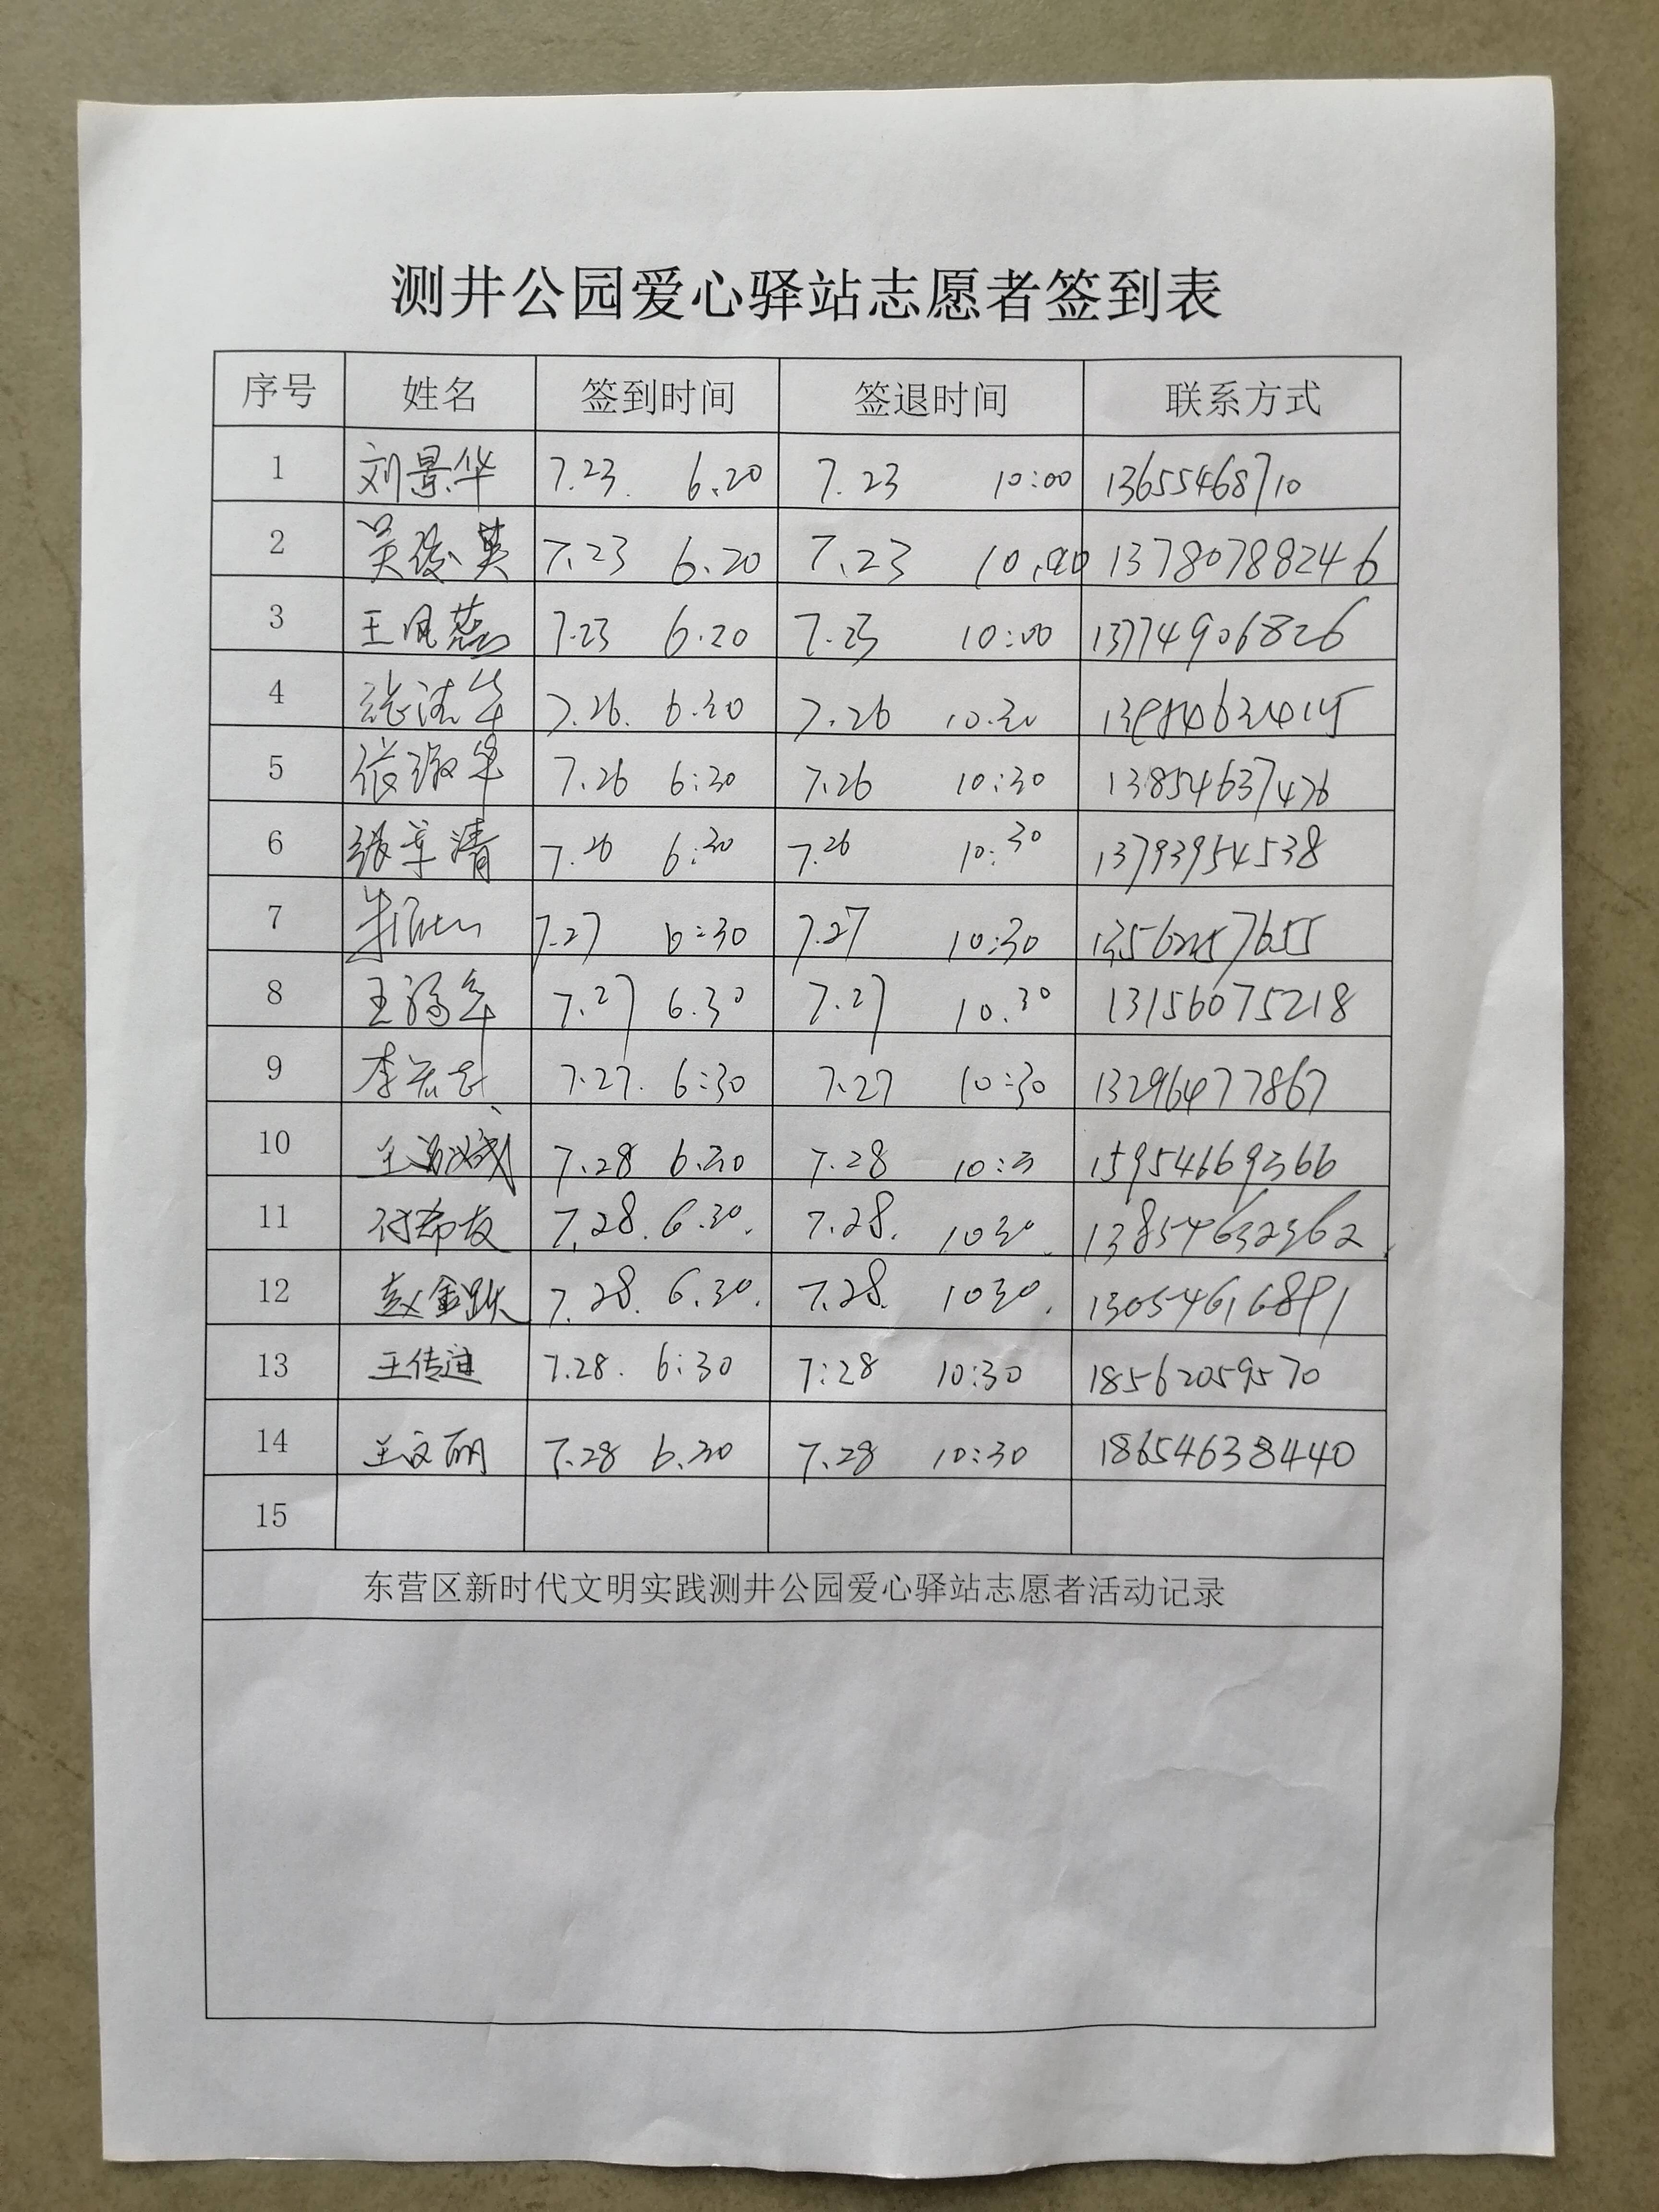 测井公园爱心驿站志愿者签到表
序号 姓名 签到时间 签退时间 联系方式
1 刘景华 7.23. 6.20 7.23 10:00 13655468710
2 吴俊英 7.23 6.20 7.23 10.00 13780788246
3 王凤燕 7.23 6.20 7.23 10:00 13774906826
4 7.26. 6.30 7.26 10.30
5 张淑华 7.26 6:30 7.26 10:30 13854637476
6 张章清 7.26 6:30 7.26 10:30 13793954538
7 7.27 6:30 7.27 10:30
8 王福年 7.27 6.30 7.27 10.30 13156075218
9 7.27. 6:30 7.27 10:30 13296477867
10 7.28 6.30 7.28 10:3 15954669366
11 付希友 7.28. 6.30. 7.28. 1030. 13854632362.
12 赵金跃 7.28. 6.30. 7.28. 1030. 13054616891
13 王传进 7.28. 6:30 7:28 10:30 18562059570
14 王文丽 7.28 6.30 7.28 10:30 18654638440
15
东营区新时代文明实践测井公园爱心驿站志愿者活动记录